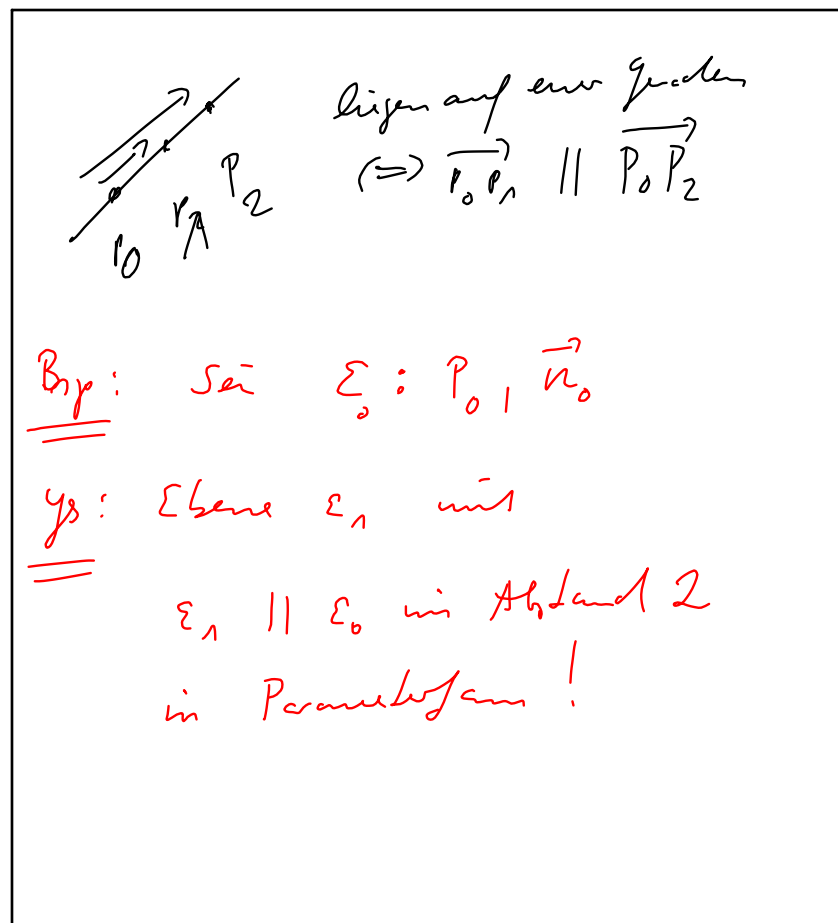 liegen auf einer Geraden
P₀ P₁ P₂
(=) P₀P₁ || P₀P₂
Bsp: Sei ε₀: P₀, n₀
gs: Ebene ε₁ mit
ε₁ || ε₀ im Abstand 2
in Parameterform!